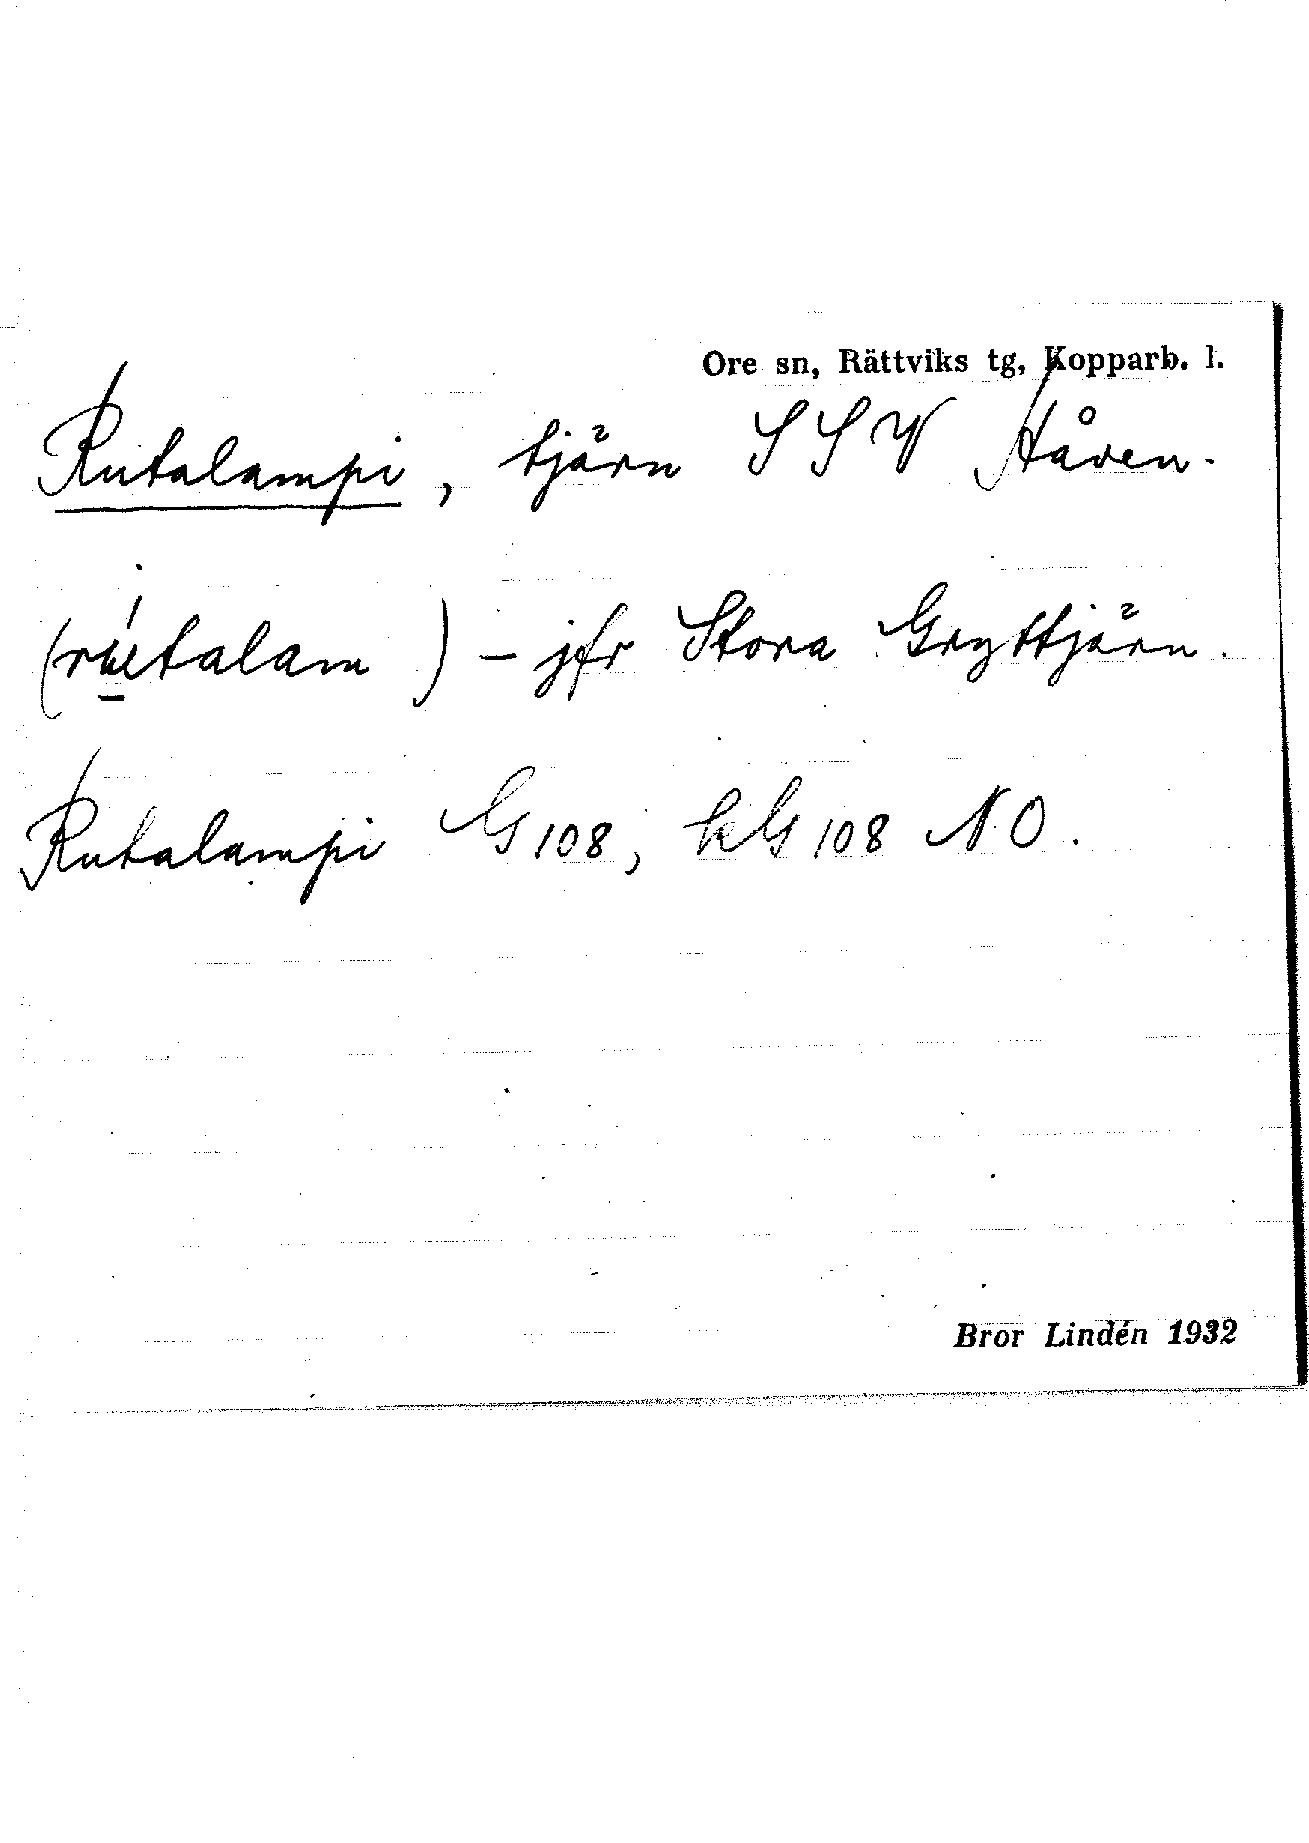 Ore sn, Rättviks tg, Kopparb. l.
Rutalampi, tjärn SSV Håven.
(rútalam ) – jfr Stora Gryttjärn.
Rutalampi G108, kG108 NO.
Bror Lindén 1932